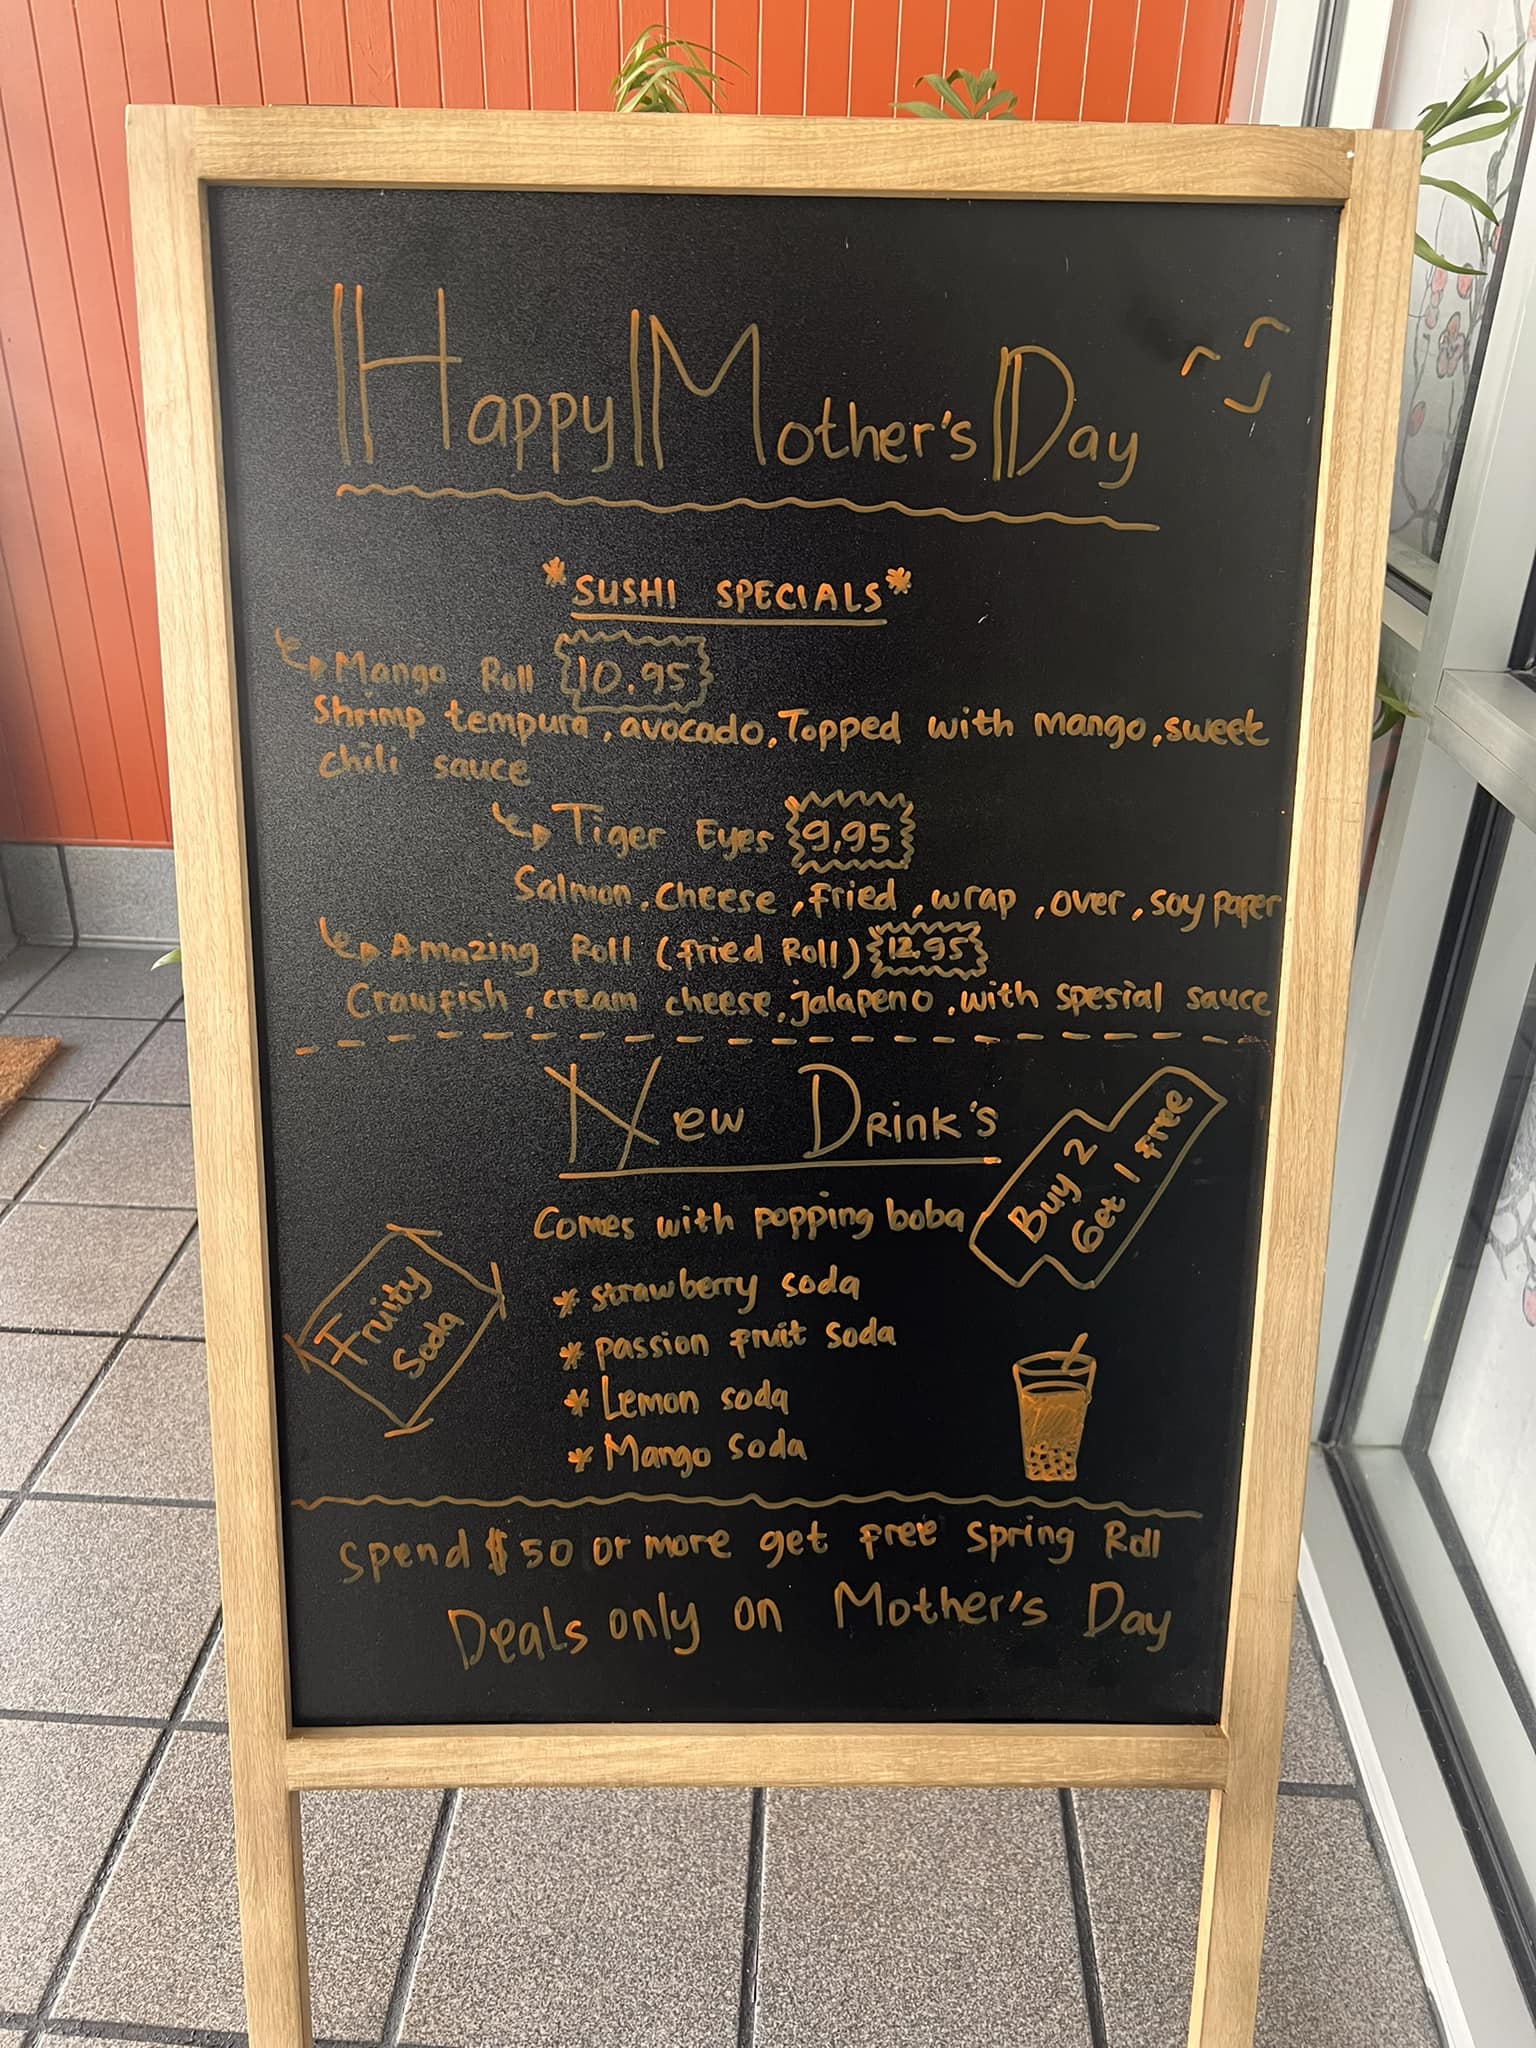 Happy Mother's Day
*SUSHI SPECIALS*
Mango Roll 10.95
Shrimp tempura, avocado, Topped with mango, sweet
chili sauce
Tiger Eyes 9,95
Salmon, cheese, fried, wrap, over, soy paper
Amazing Roll (fried Roll) 12.95
Crawfish, cream cheese, jalapeno, with spesial sauce
New Drink's
Buy 2
Get 1 free
Comes with popping boba
Fruity
Soda
* strawberry soda
* passion fruit soda
* Lemon soda
* Mango soda
Spend $50 or more get free Spring Roll
Deals only on Mother's Day